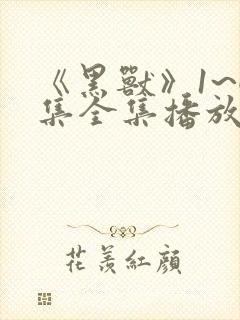 《黑獸》1~
集全集播放
花羨紅顏